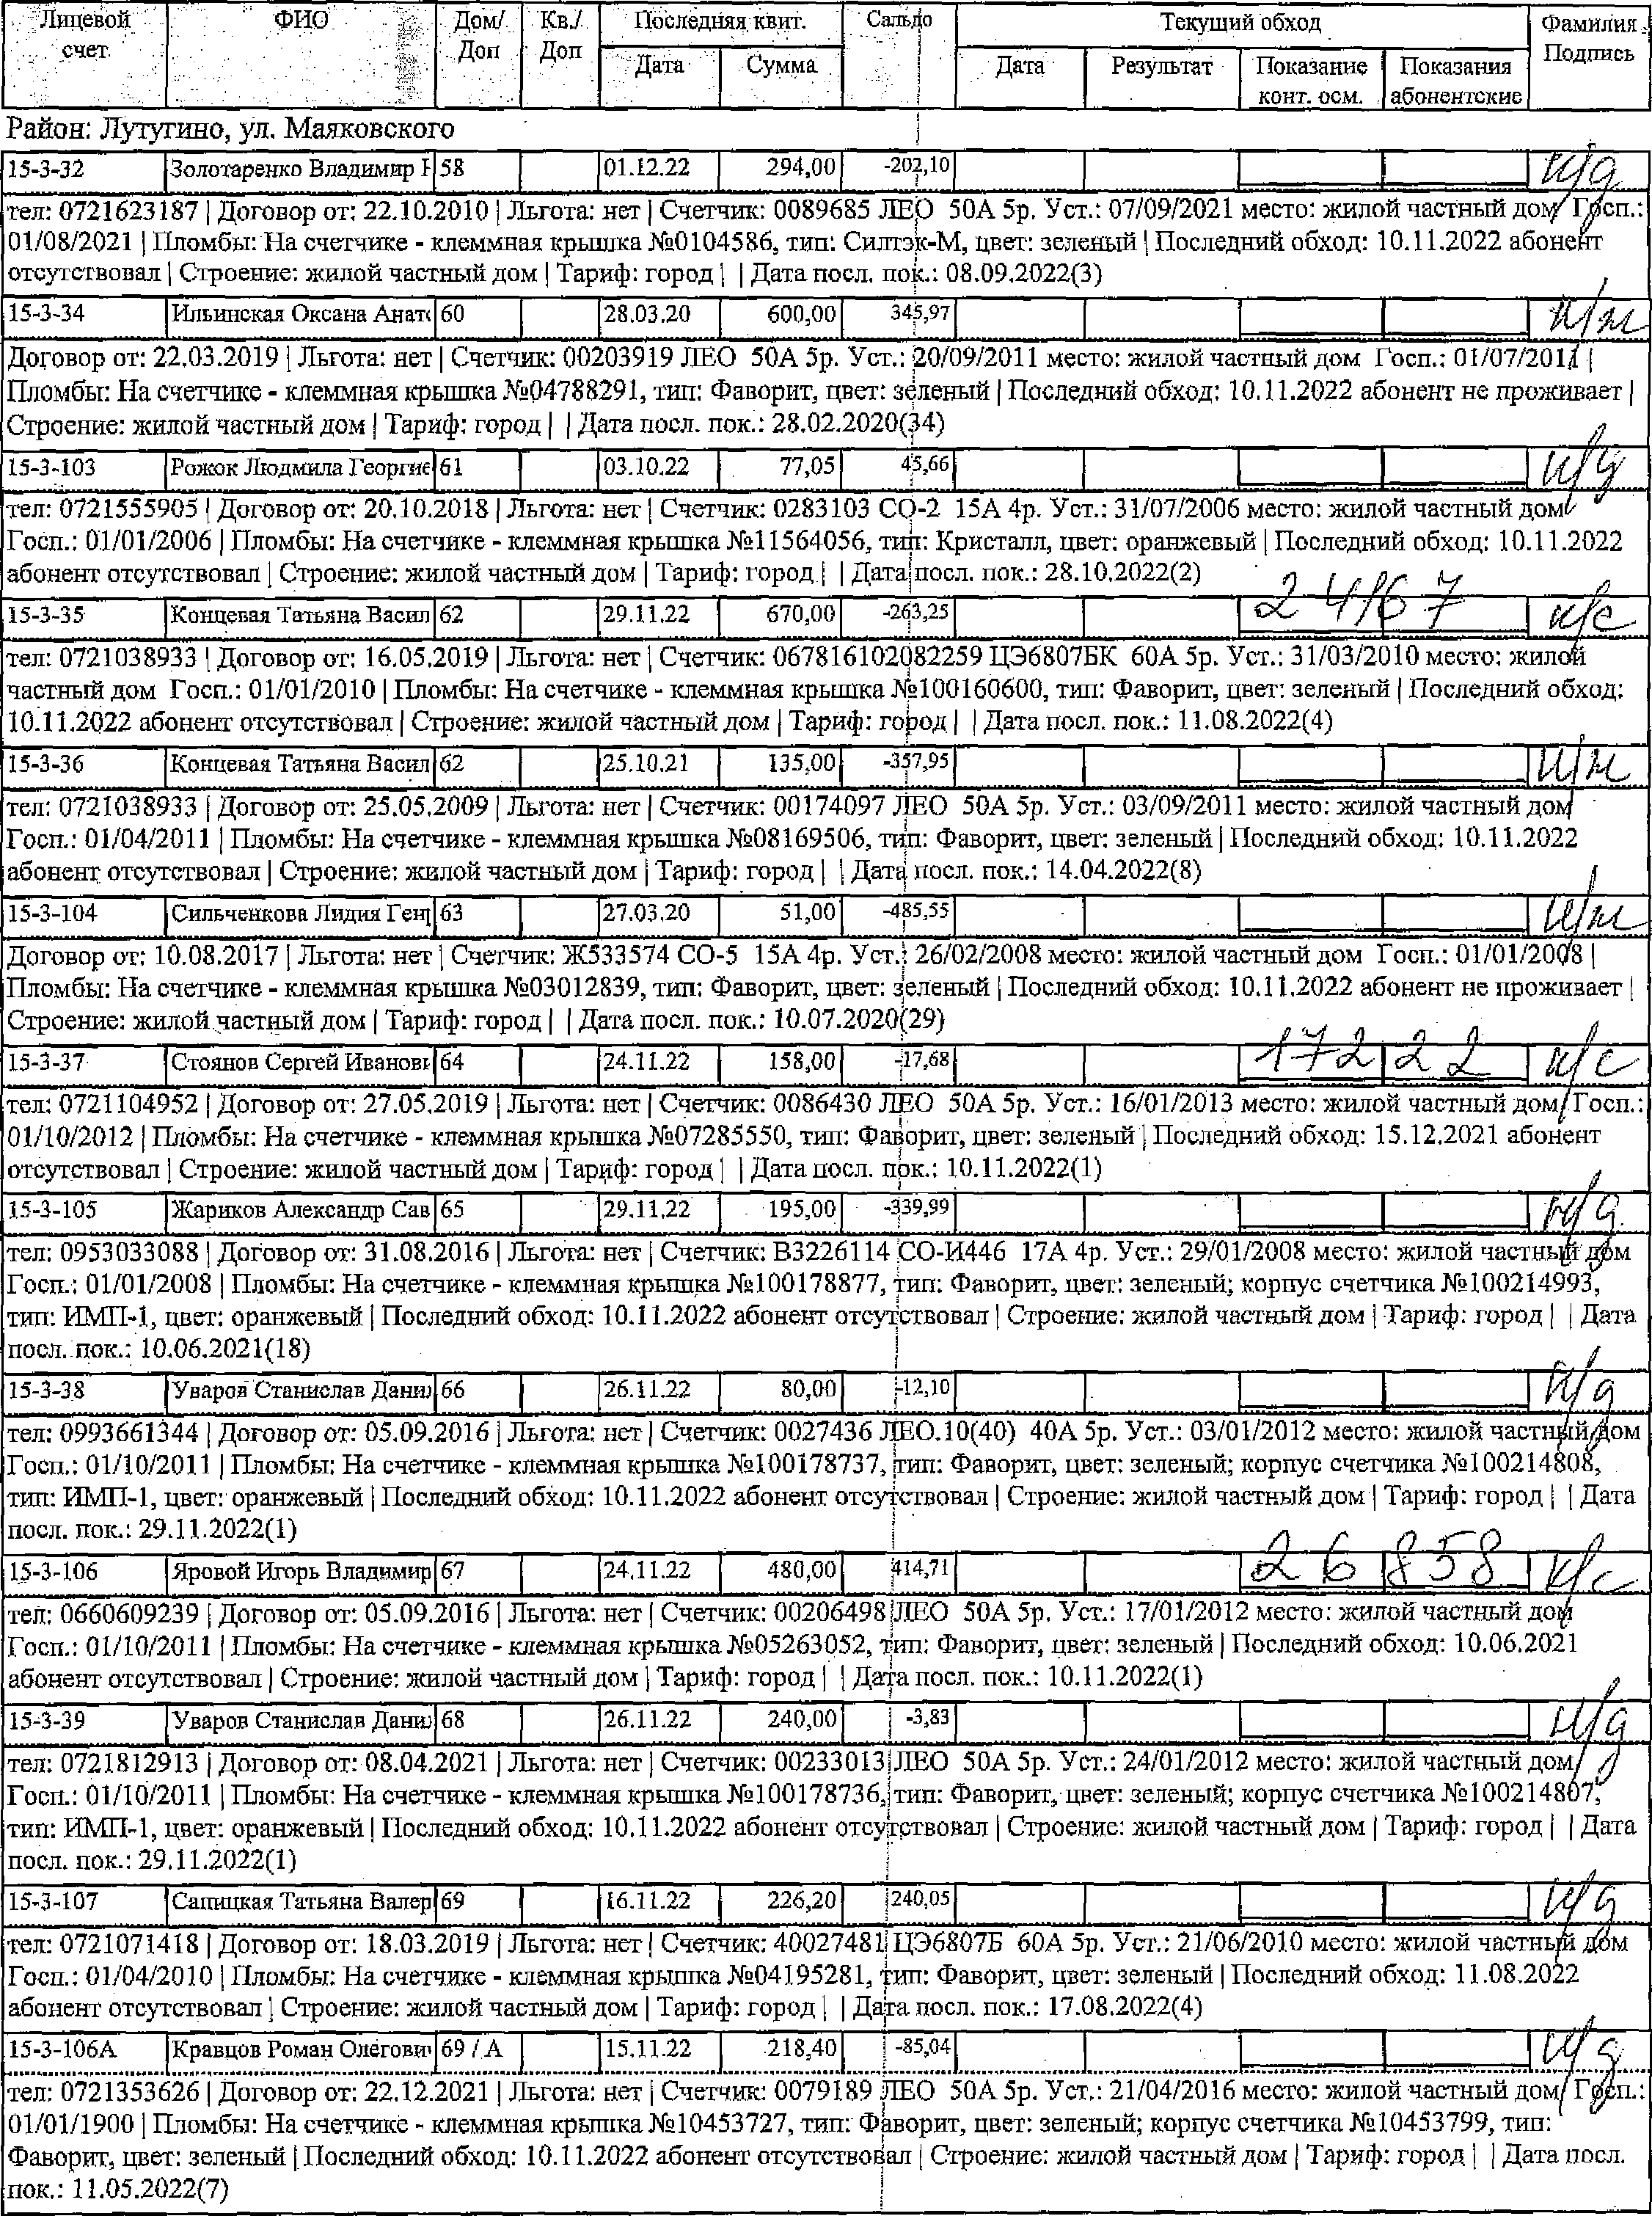 Лицевой счет ФИО Дом/Доп Кв./Доп Последняя квит. Сальдо Текущий обход Фамилия Подпись
Дата Сумма Дата Результат Показание конт. осм. Показания абонентские
Район: Лутугино, ул. Маяковского
15-3-32 Золотаренко Владимир Н 58 01.12.22 294,00 -202,10 н/д
тел: 0721623187 | Договор от: 22.10.2010 | Льгота: нет | Счетчик: 0089685 ЛЕО 50А 5р. Уст.: 07/09/2021 место: жилой частный дом Госп.:
01/08/2021 | Пломбы: На счетчике - клеммная крышка №0104586, тип: Силтэк-М, цвет: зеленый | Последний обход: 10.11.2022 абонент
отсутствовал | Строение: жилой частный дом | Тариф: город | | Дата посл. пок.: 08.09.2022(3)
15-3-34 Ильинская Оксана Анато 60 28.03.20 600,00 345,97 н/ж
Договор от: 22.03.2019 | Льгота: нет | Счетчик: 00203919 ЛЕО 50А 5р. Уст.: 20/09/2011 место: жилой частный дом Госп.: 01/07/2011 |
Пломбы: На счетчике - клеммная крышка №04788291, тип: Фаворит, цвет: зеленый | Последний обход: 10.11.2022 абонент не проживает |
Строение: жилой частный дом | Тариф: город | | Дата посл. пок.: 28.02.2020(34)
15-3-103 Рожок Людмила Георгие 61 03.10.22 77,05 45,66 н/д
тел: 0721555905 | Договор от: 20.10.2018 | Льгота: нет | Счетчик: 0283103 СО-2 15А 4р. Уст.: 31/07/2006 место: жилой частный дом
Госп.: 01/01/2006 | Пломбы: На счетчике - клеммная крышка №11564056, тип: Кристалл, цвет: оранжевый | Последний обход: 10.11.2022
абонент отсутствовал | Строение: жилой частный дом | Тариф: город | | Дата посл. пок.: 28.10.2022(2)
15-3-35 Концевая Татьяна Васил 62 29.11.22 670,00 -263,25 24167 к/с
тел: 0721038933 | Договор от: 16.05.2019 | Льгота: нет | Счетчик: 067816102082259 ЦЭ6807БК 60А 5р. Уст.: 31/03/2010 место: жилой
частный дом Госп.: 01/01/2010 | Пломбы: На счетчике - клеммная крышка №100160600, тип: Фаворит, цвет: зеленый | Последний обход:
10.11.2022 абонент отсутствовал | Строение: жилой частный дом | Тариф: город | | Дата посл. пок.: 11.08.2022(4)
15-3-36 Концевая Татьяна Васил 62 25.10.21 135,00 -357,95 н/ж
тел: 0721038933 | Договор от: 25.05.2009 | Льгота: нет | Счетчик: 00174097 ЛЕО 50А 5р. Уст.: 03/09/2011 место: жилой частный дом
Госп.: 01/04/2011 | Пломбы: На счетчике - клеммная крышка №08169506, тип: Фаворит, цвет: зеленый | Последний обход: 10.11.2022
абонент отсутствовал | Строение: жилой частный дом | Тариф: город | | Дата посл. пок.: 14.04.2022(8)
15-3-104 Сильченкова Лидия Генр 63 27.03.20 51,00 -485,55 н/ж
Договор от: 10.08.2017 | Льгота: нет | Счетчик: Ж533574 СО-5 15А 4р. Уст.: 26/02/2008 место: жилой частный дом Госп.: 01/01/2008 |
Пломбы: На счетчике - клеммная крышка №03012839, тип: Фаворит, цвет: зеленый | Последний обход: 10.11.2022 абонент не проживает |
Строение: жилой частный дом | Тариф: город | | Дата посл. пок.: 10.07.2020(29)
15-3-37 Стоянов Сергей Иванови 64 24.11.22 158,00 -17,68 17222 к/с
тел: 0721104952 | Договор от: 27.05.2019 | Льгота: нет | Счетчик: 0086430 ЛЕО 50А 5р. Уст.: 16/01/2013 место: жилой частный дом Госп.:
01/10/2012 | Пломбы: На счетчике - клеммная крышка №07285550, тип: Фаворит, цвет: зеленый | Последний обход: 15.12.2021 абонент
отсутствовал | Строение: жилой частный дом | Тариф: город | | Дата посл. пок.: 10.11.2022(1)
15-3-105 Жариков Александр Сав 65 29.11.22 195,00 -339,99 н/д
тел: 0953033088 | Договор от: 31.08.2016 | Льгота: нет | Счетчик: В3226114 СО-И446 17А 4р. Уст.: 29/01/2008 место: жилой частный дом
Госп.: 01/01/2008 | Пломбы: На счетчике - клеммная крышка №100178877, тип: Фаворит, цвет: зеленый; корпус счетчика №100214993,
тип: ИМП-1, цвет: оранжевый | Последний обход: 10.11.2022 абонент отсутствовал | Строение: жилой частный дом | Тариф: город | | Дата
посл. пок.: 10.06.2021(18)
15-3-38 Уваров Станислав Данил 66 26.11.22 80,00 -12,10 н/д
тел: 0993661344 | Договор от: 05.09.2016 | Льгота: нет | Счетчик: 0027436 ЛЕО.10(40) 40А 5р. Уст.: 03/01/2012 место: жилой частный дом
Госп.: 01/10/2011 | Пломбы: На счетчике - клеммная крышка №100178737, тип: Фаворит, цвет: зеленый; корпус счетчика №100214808,
тип: ИМП-1, цвет: оранжевый | Последний обход: 10.11.2022 абонент отсутствовал | Строение: жилой частный дом | Тариф: город | | Дата
посл. пок.: 29.11.2022(1)
15-3-106 Яровой Игорь Владимир 67 24.11.22 480,00 414,71 26858 к/с
тел: 0660609239 | Договор от: 05.09.2016 | Льгота: нет | Счетчик: 00206498 ЛЕО 50А 5р. Уст.: 17/01/2012 место: жилой частный дом
Госп.: 01/10/2011 | Пломбы: На счетчике - клеммная крышка №05263052, тип: Фаворит, цвет: зеленый | Последний обход: 10.06.2021
абонент отсутствовал | Строение: жилой частный дом | Тариф: город | | Дата посл. пок.: 10.11.2022(1)
15-3-39 Уваров Станислав Данил 68 26.11.22 240,00 -3,83 н/д
тел: 0721812913 | Договор от: 08.04.2021 | Льгота: нет | Счетчик: 00233013 ЛЕО 50А 5р. Уст.: 24/01/2012 место: жилой частный дом
Госп.: 01/10/2011 | Пломбы: На счетчике - клеммная крышка №100178736, тип: Фаворит, цвет: зеленый; корпус счетчика №100214807,
тип: ИМП-1, цвет: оранжевый | Последний обход: 10.11.2022 абонент отсутствовал | Строение: жилой частный дом | Тариф: город | | Дата
посл. пок.: 29.11.2022(1)
15-3-107 Сапицкая Татьяна Валер 69 16.11.22 226,20 240,05 н/д
тел: 0721071418 | Договор от: 18.03.2019 | Льгота: нет | Счетчик: 40027481 ЦЭ6807Б 60А 5р. Уст.: 21/06/2010 место: жилой частный дом
Госп.: 01/04/2010 | Пломбы: На счетчике - клеммная крышка №04195281, тип: Фаворит, цвет: зеленый | Последний обход: 11.08.2022
абонент отсутствовал | Строение: жилой частный дом | Тариф: город | | Дата посл. пок.: 17.08.2022(4)
15-3-106А Кравцов Роман Олегович 69 / А 15.11.22 218,40 -85,04 н/д
тел: 0721353626 | Договор от: 22.12.2021 | Льгота: нет | Счетчик: 0079189 ЛЕО 50А 5р. Уст.: 21/04/2016 место: жилой частный дом Госп.:
01/01/1900 | Пломбы: На счетчике - клеммная крышка №10453727, тип: Фаворит, цвет: зеленый; корпус счетчика №10453799, тип:
Фаворит, цвет: зеленый | Последний обход: 10.11.2022 абонент отсутствовал | Строение: жилой частный дом | Тариф: город | | Дата посл.
пок.: 11.05.2022(7)